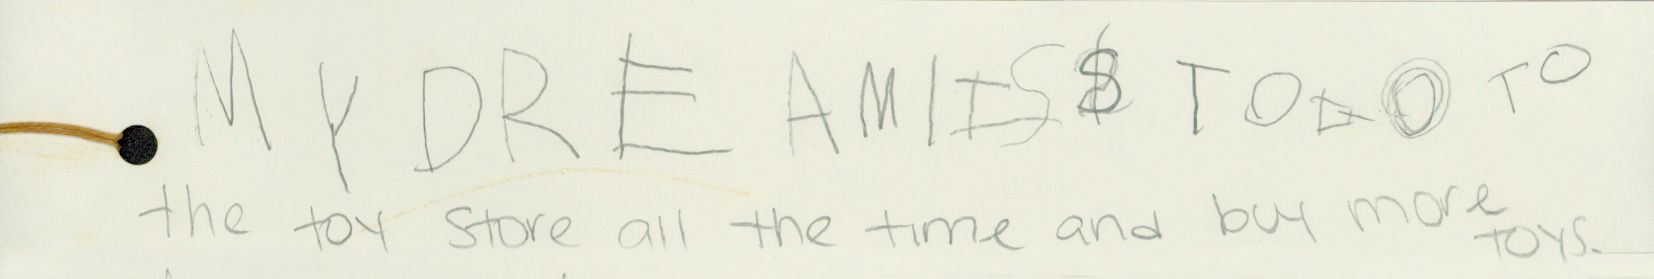 MY DREAM IS TO GO TO
the toy store all the time and buy more
toys.